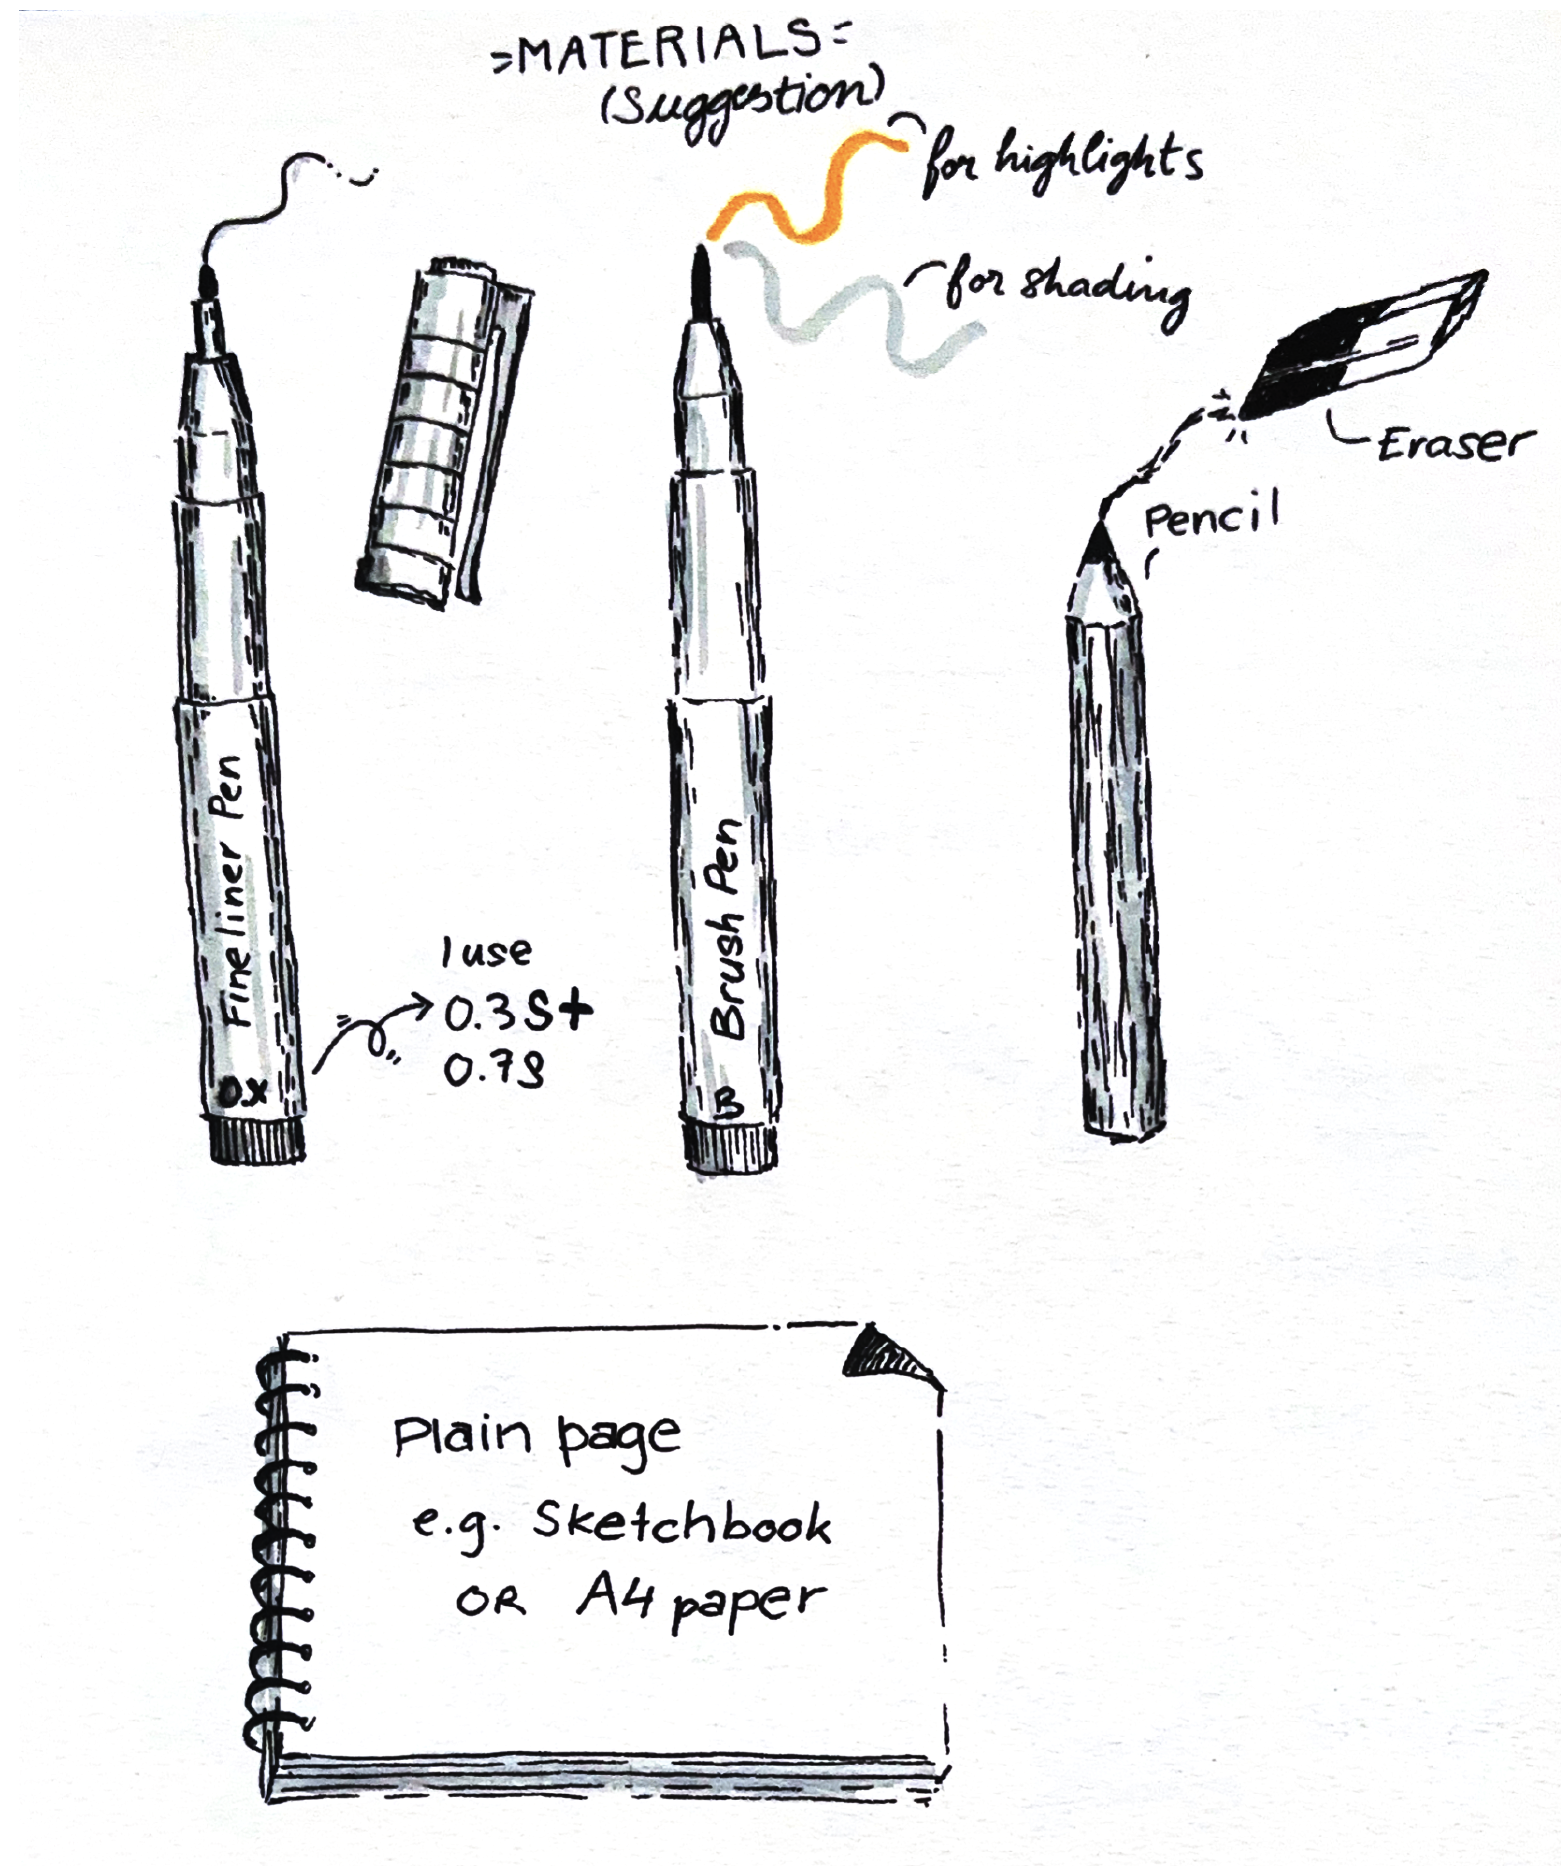 =MATERIALS=
(Suggestion)
for highlights
for shading
Eraser
Pencil
Fineliner Pen
0.X
I use
0.3S+
0.7S
Brush Pen
B
Plain page
e.g. Sketchbook
OR A4 paper